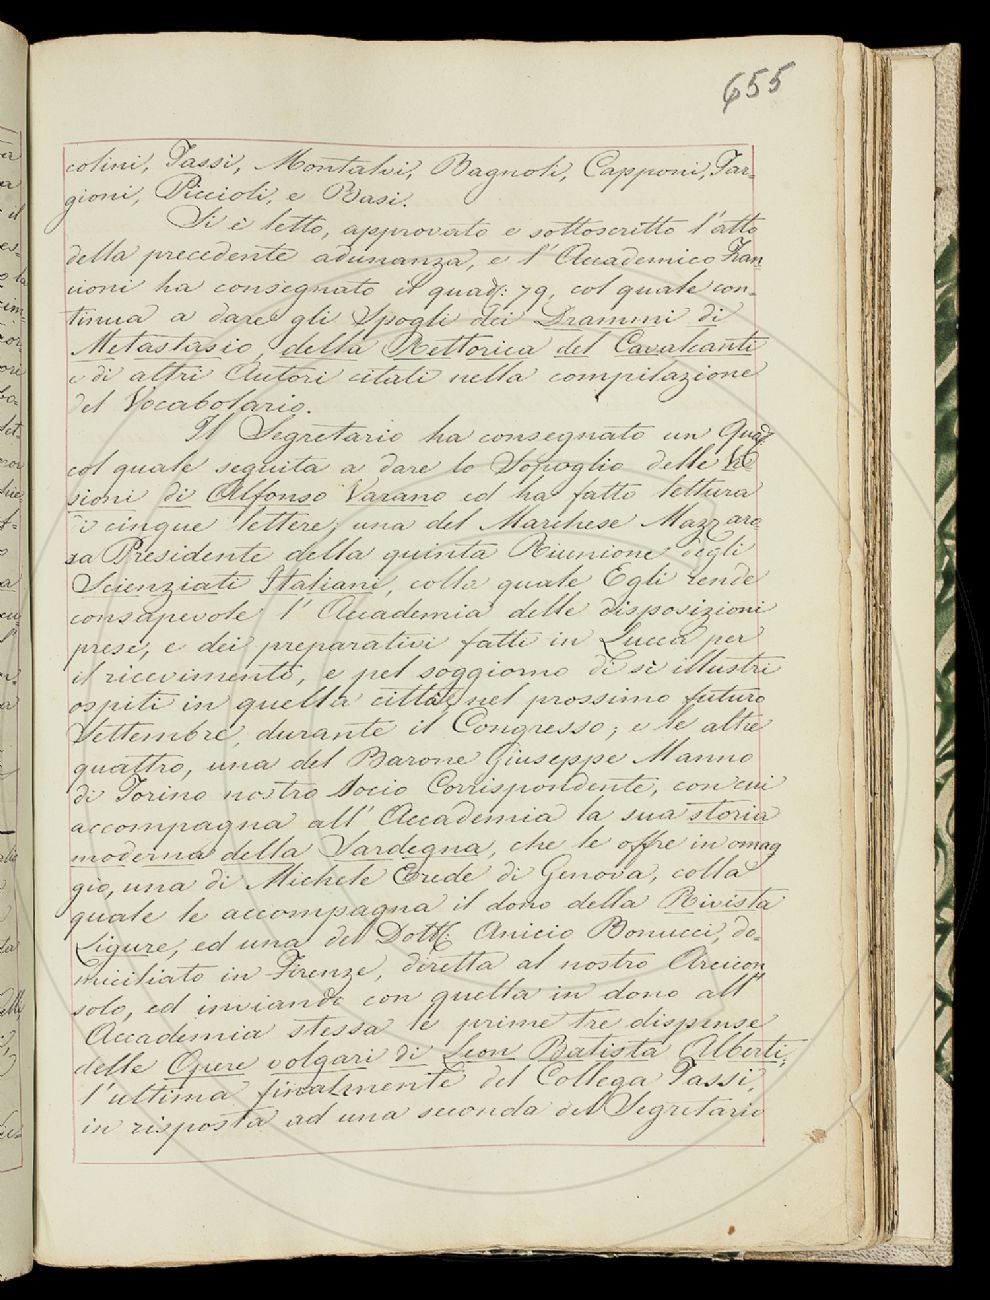 655
colini, Tassi, Montalvi, Bagnoli, Capponi, Tar-
gioni, Piccioli, e Basi.
Si è letto, approvato e sottoscritto l'atto
della precedente adunanza, e l'Accademico Zan
noni ha consegnato il quad: 79, col quale con-
tinua a dare gli Spogli dei Drammi di
Metastasio, della Rettorica del Cavalcanti
e di altri Autori citati nella compilazione
del Vocabolario.
Il Segretario ha consegnato un Quad:
col quale seguita a dare lo Sopoglio delle Vi
sioni di Alfonso Varano ed ha fatto lettura
di cinque lettere; una del Marchese Mazzaro
sa Presidente della quinta Riunione degli
Scienziati Italiani, colla quale Egli rende
consapevole l'Accademia delle disposizioni
prese, e dei preparativi fatti in Lucca per
il ricevimento, e pel soggiorno di sì illustri
ospiti in quella città nel prossimo futuro
Settembre, durante il Congresso; e le altre
quattro, una del Barone Giuseppe Manno
di Torino nostro Socio Corrispondente, con cui
accompagna all'Accademia la sua storia
moderna della Sardegna, che le offre in omag
gio, una di Michele Erede di Genova, colla
quale le accompagna il dono della Rivista
Ligure, ed una del Dott: Anicio Bonucci, do-
miciliato in Firenze, diretta al nostro Arcicon
solo, ed inviando con quella in dono all'
Accademia stessa le prime tre dispense
delle Opere volgari di Leon Batista Alberti,
l'ultima finalmente del Collega Tassi,
in risposta ad una seconda del Segretario